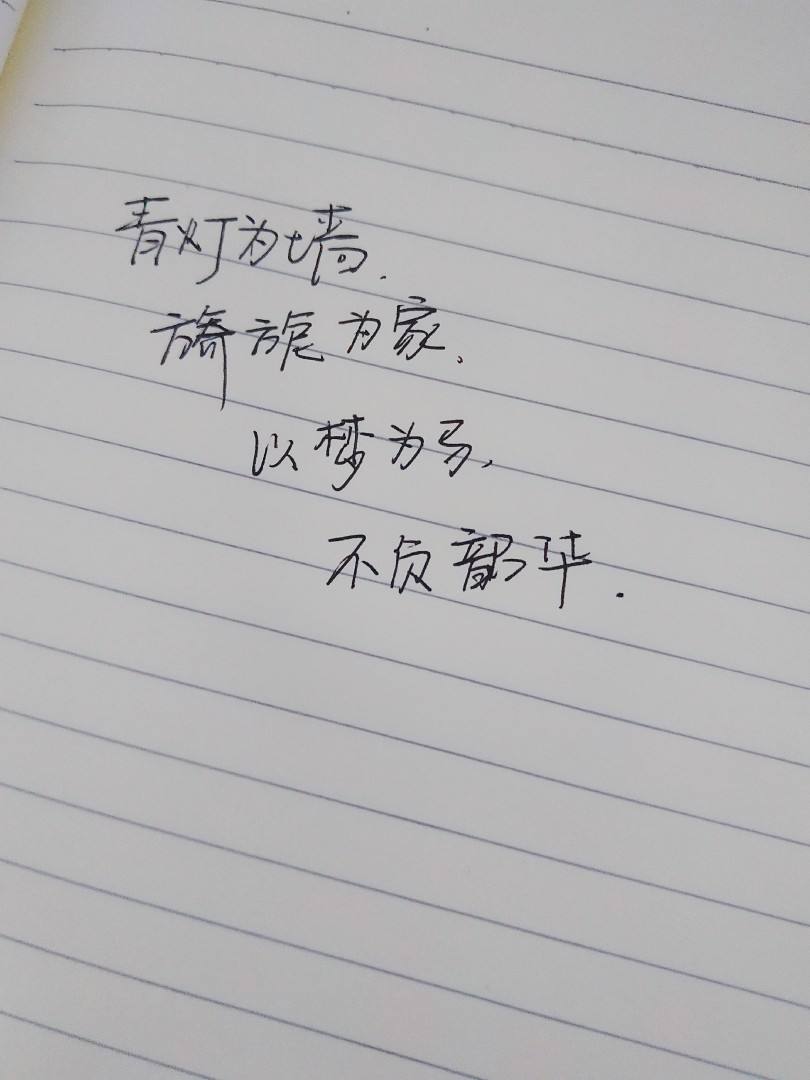 青灯为墙.
旖旎为家.
以梦为马,
不负韶华.